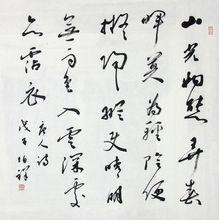 山光物態弄春
暉莫為輕陰便
擬歸縱使晴明
無雨色入雲深處
亦霑衣
唐人詩